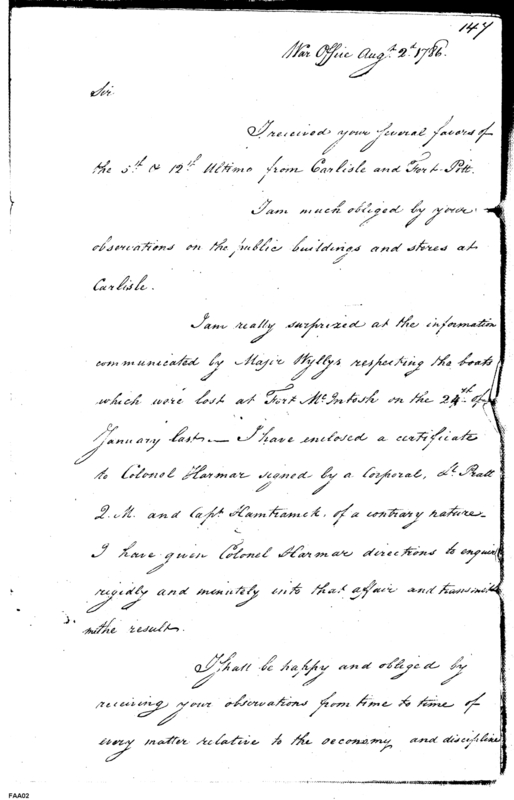 147
War Office Augt. 2d. 1786.
Sir
I received your several favors of
the 5th & 12th Ultimo from Carlisle and Fort-Pitt.
I am much obliged by your
observations on the public buildings and stores at
Carlisle.
I am really surprized at the information
communicated by Major Wyllys respecting the boats
which were lost at Fort McIntosh on the 24th of
January last — I have enclosed a certificate
to Colonel Harmar signed by a Corporal, Lt Pratt
Q. M. and Capt Hamtramck, of a contrary nature —
I have given Colonel Harmar directions to enquire
rigidly and minutely into that affair and transmit
me the result.
I shall be happy and obliged by
receiving your observations from time to time of
every matter relative to the oeconomy and discipline
FAA02